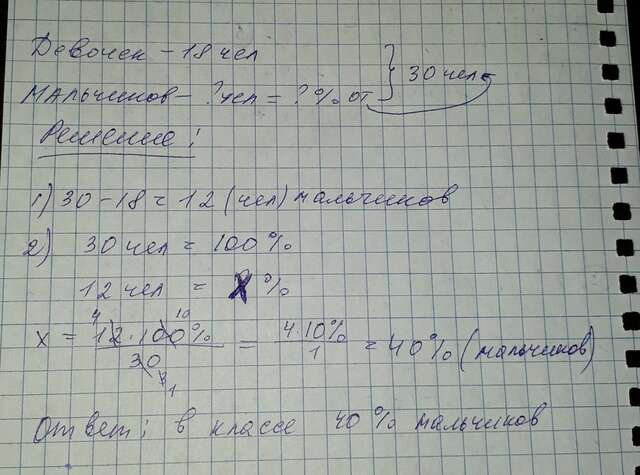 Девочек - 18 чел
Мальчиков - ? чел = ? % от } 30 чел
Решение:
1) 30 - 18 = 12 (чел) мальчиков
2) 30 чел = 100%
12 чел = X %
4 10
x = 12·100% / 30 = 4·10% / 1 = 40% (мальчиков)
3 1
Ответ: в классе 40% мальчиков